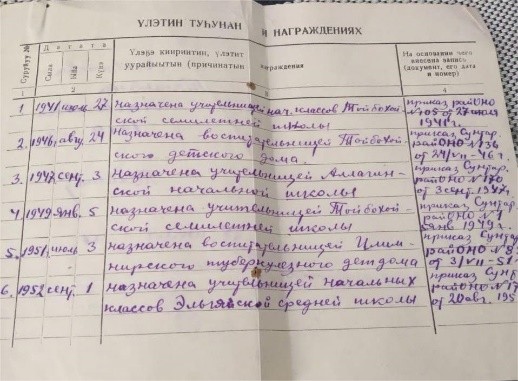 ҮЛЭТИН ТУҺУНАН И НАГРАЖДЕНИЯХ
Дата
Сыла Ыйа Күнэ
награждения
На основании чего
внесена запись
(документ, его дата
и номер)
1 2 3 4
1 1941 июль 27 назначена учительницей нач. классов Тойбохой- приказ райОНО
ской семилетней школы №105 от 27 июля
1941 г.
2. 1946 авг. 24 назначена воспитательницей Тойбохой- приказ Сунтар.
ского детского дома. райОНО №136
от 24/VII-46 г.
3. 1947 сент. 3 назначена учительницей приказ Сунтар.
ской начальной школы райОНО №170
от 3 сент. 1947
4. 1949 янв. 5 назначена учительницей Тойбохой- приказ Сунтар.
ской семилетней школы райОНО №1
янв 1949 г.
5. 1951 июль 3 назначена воспитательницей приказ Сунт.
туберкулезного детдома райОНО
от 3/VII-51
6. 1952 сент. 1 назначена учительницей начальных приказ Сунт
классов Эльгяйской средней школы райОНО №17
от 20 авг. 195